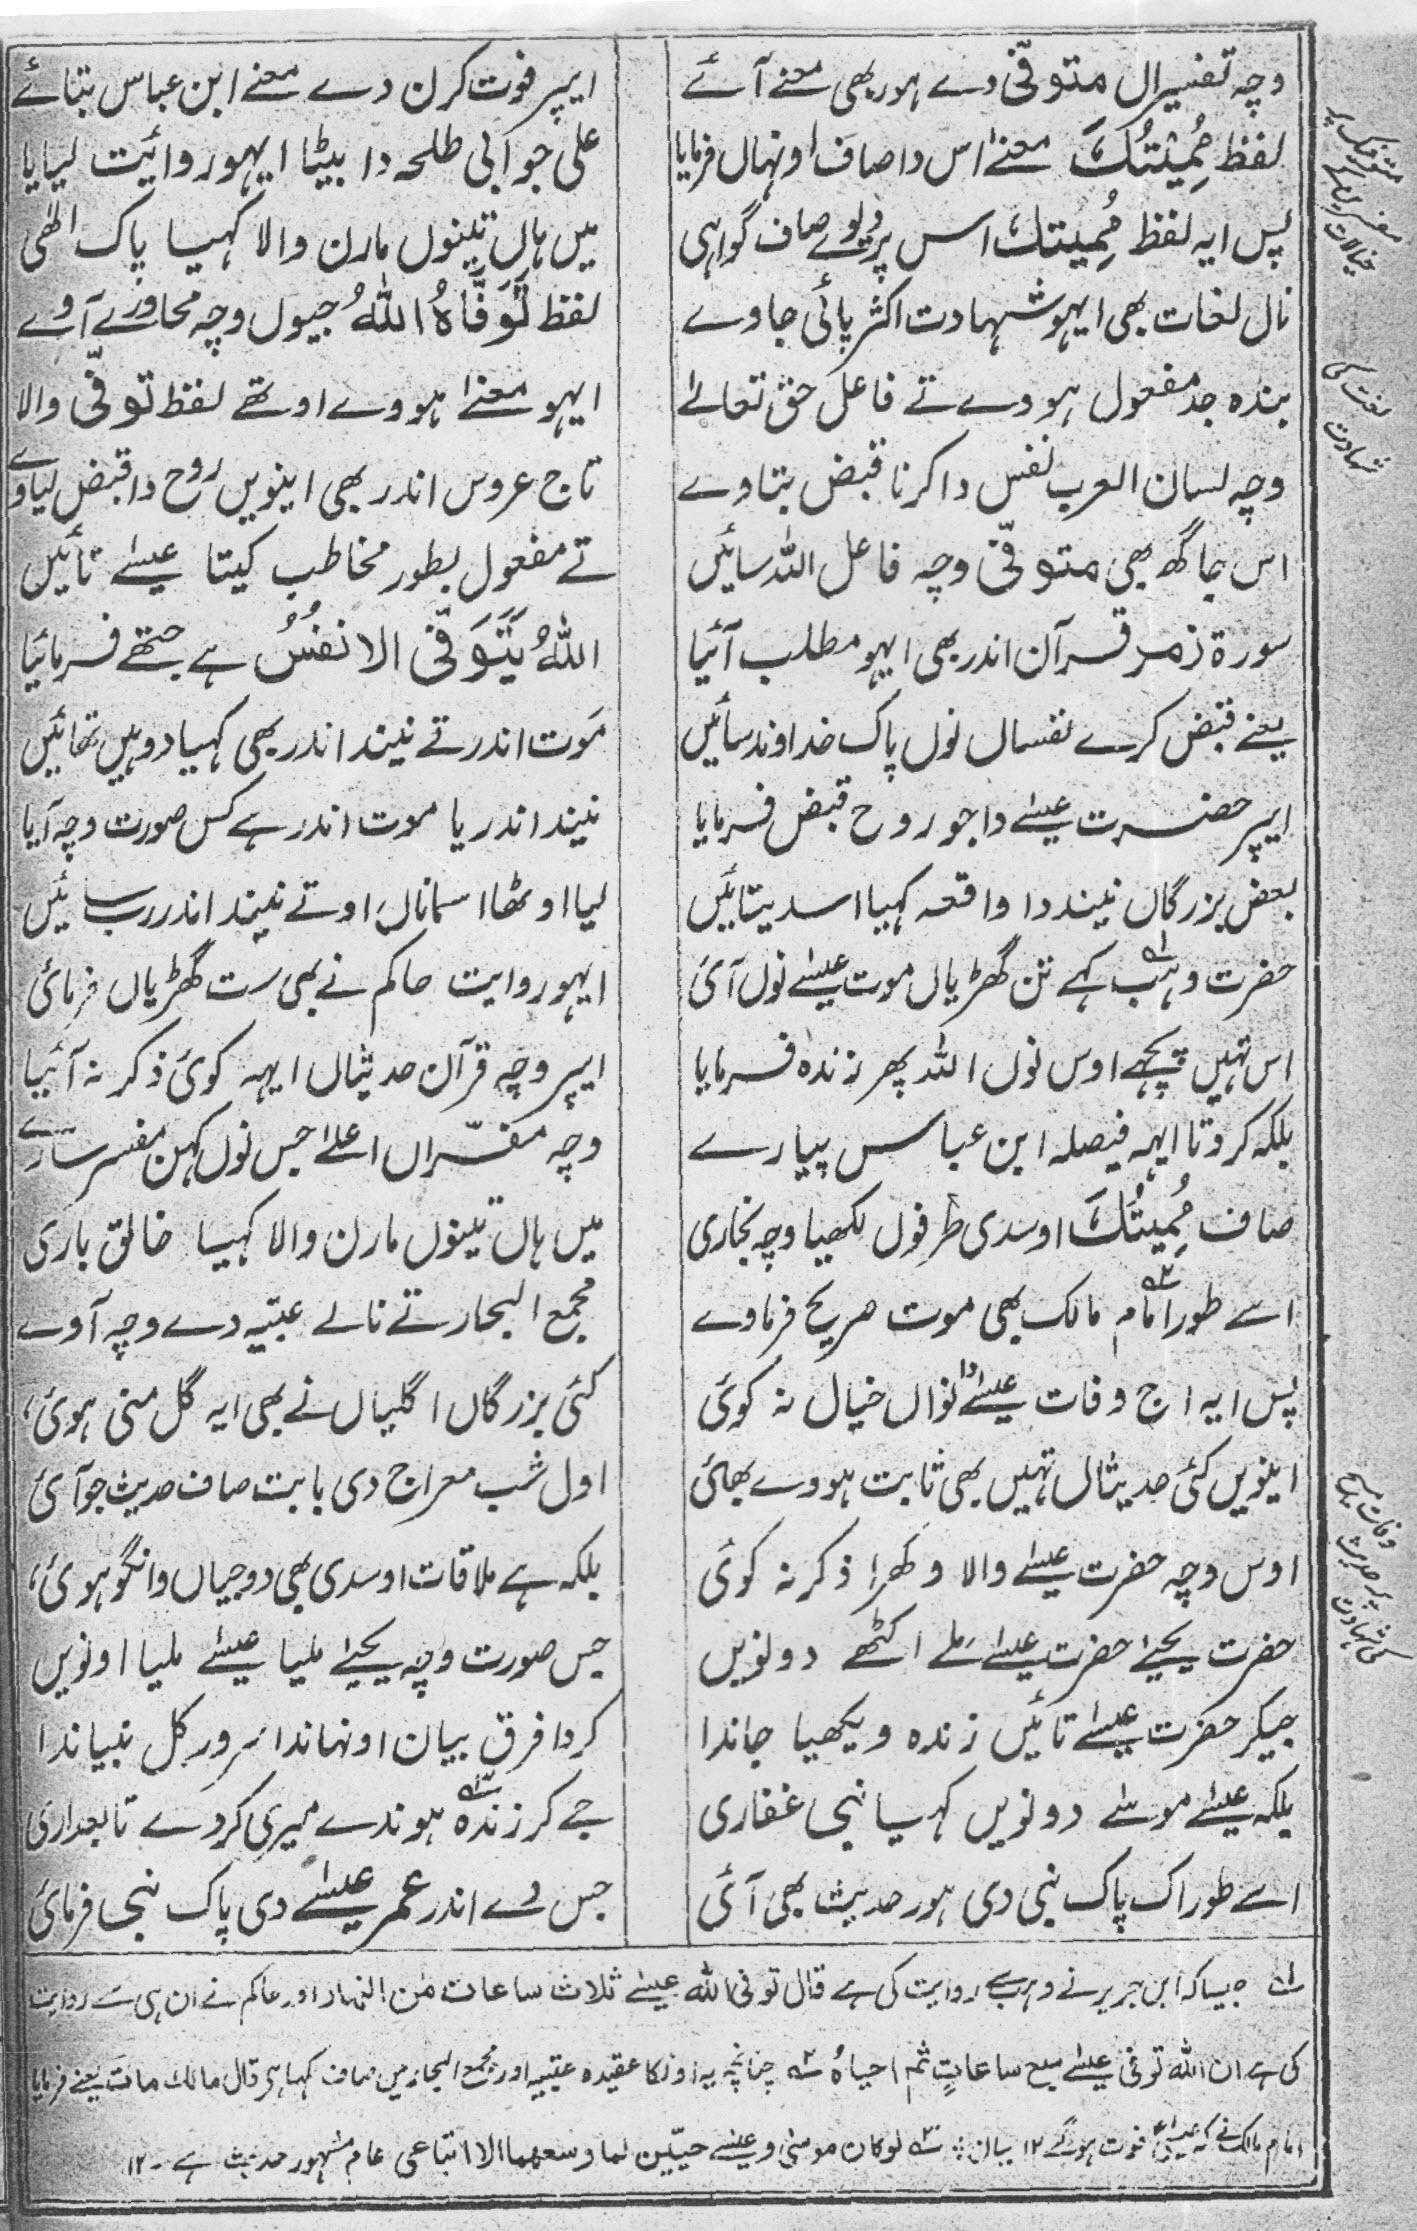 وچہ تفسیراں متوفّی دے ہور بھی معنے آئے ایپر فوت کرن دے معنے ابن عباس بتائے
لفظ مُمِیْتُکَ معنےٰ اس دا صاف اونہاں فرمایا علی جو ابی طلحہ دا بیٹا ایہو روائیت لیایا
پس ایہ لفظ مُمِیتک اس پر دیوے صاف گواہی میں ہاں تینوں مارن والا کہیا پاک الٰہی
نال لغات بھی ایہو شہادت اکثر پائی جاوے لفظ تَوَفَّاہُ اللہُ جیوں وچہ محاورے آوے
بندہ جد مفعول ہووے تے فاعل حق تعالےٰ ایہو معنےٰ ہووے اوتھے لفظ توفّی والا
وچہ لسان العرب نفس دا کرنا قبض بتاوے تاج عروس اندر بھی اینویں روح دا قبض لیاوے
اس جاگھ بھی متوفّی وچہ فاعل اللہ سائیں تے مفعول بطور مخاطب کیتا عیسےٰ تائیں
سورۃ زمر قرآن اندر بھی ایہو مطلب آئیا اللہُ یَتَوَفّی الانفُسُ ہے جتھے فرمائیا
یعنے قبض کرے نفساں نوں پاک خداوند سائیں مَوت اندر تے نیند اندر بھی کہیا دوہیں تھائیں
ایپر حضرت عیسےٰ دا جو روح قبض فرمایا نیند اندر یا موت اندر ہے کس صورت وچہ آیا
بعض بزرگاں نیند دا واقعہ کہیا اسدیتائیں لیا اوٹھا اسماناں اوتے نیند اندر رب سائیں
حضرت وہب۱ کہے تن گھڑیاں موت عیسےٰ نوں آئی ایہو روایت حاکم نے بھی ست گھڑیاں فرمائی
اس تہیں پچھے اوس نوں اللہ پھر زندہ فرمایا ایپر وچہ قرآن حدیثاں ایہہ کوئی ذکر نہ آئیا
بلکہ کردتا ایہہ فیصلہ ابن عباس پیارے وچہ مفسّراں اعلےٰ جس نوں کہن مفسر سارے
صاف مُمِیْتُکَ اوسدی طرفوں لکھیا وچہ بخاری میں ہاں تینوں مارن والا کہیا خالق باری
اسے طور امام۲ مالک بھی موت صریح فرماوے مجمع البحار تے نالے عتبیہ دے وچہ آوے
پس ایہ اج وفات عیسےٰ دا نواں خیال نہ کوئی کئی بزرگاں اگلیاں نے بھی ایہ گل منی ہوئی
اینویں کئی حدیثاں تہیں بھی ثابت ہووے بھائی اول شب معراج دی بابت صاف حدیث جو آئی
اوس وچہ حضرت عیسےٰ والا وکھرا ذکر نہ کوئی بلکہ ہے ملاقات اوسدی بھی دوجیاں وانگو ہوئی
حضرت یحییٰ حضرت عیسےٰ ملے اکٹھے دونویں جس صورت وچہ یحییٰ ملیا عیسےٰ ملیا اونویں
جیکر حضرت عیسےٰ تائیں زندہ ویکھیا جاندا کردا فرق بیان اونہاندا سرور کل نبیاندا
بلکہ عیسےٰ موسےٰ دونویں کہیا نبی غفاری جے کر زندہ۳ ہوندے میری کردے تابعداری
اسے طور اک پاک نبی دی ہور حدیث بھی آئی جس دے اندر عمر عیسےٰ دی پاک نبی فرمائی
متوفیک پر
مفسرین کے
خیالات
لغت کی
شہادت
وفات مسیح
پر حدیث
کی شہادت
۱ جیسا کہ ابن جریر نے وہب سے روایت کی ہے قال توفی اللہ عیسےٰ ثلاث ساعات من النہار اور حاکم نے ان ہی سے روایت
کی ہے ان اللہ توفی عیسےٰ سبع ساعاتٍ ثم احیاہُ ۲ چنانچہ یہ اونکا عقیدہ عتبیہ اور مجمع البحار میں صاف کہا ہے قال مالک مات یعنے فرمایا
امام مالک نے کہ عیسیٰؑ فوت ہوگئے ۱۲ بیان ؞ ۳ لوکان موسیٰ و عیسےٰ حیّین لما وسعہما الا اتباعی عام مشہور حدیث ہے ۔ ۱۲